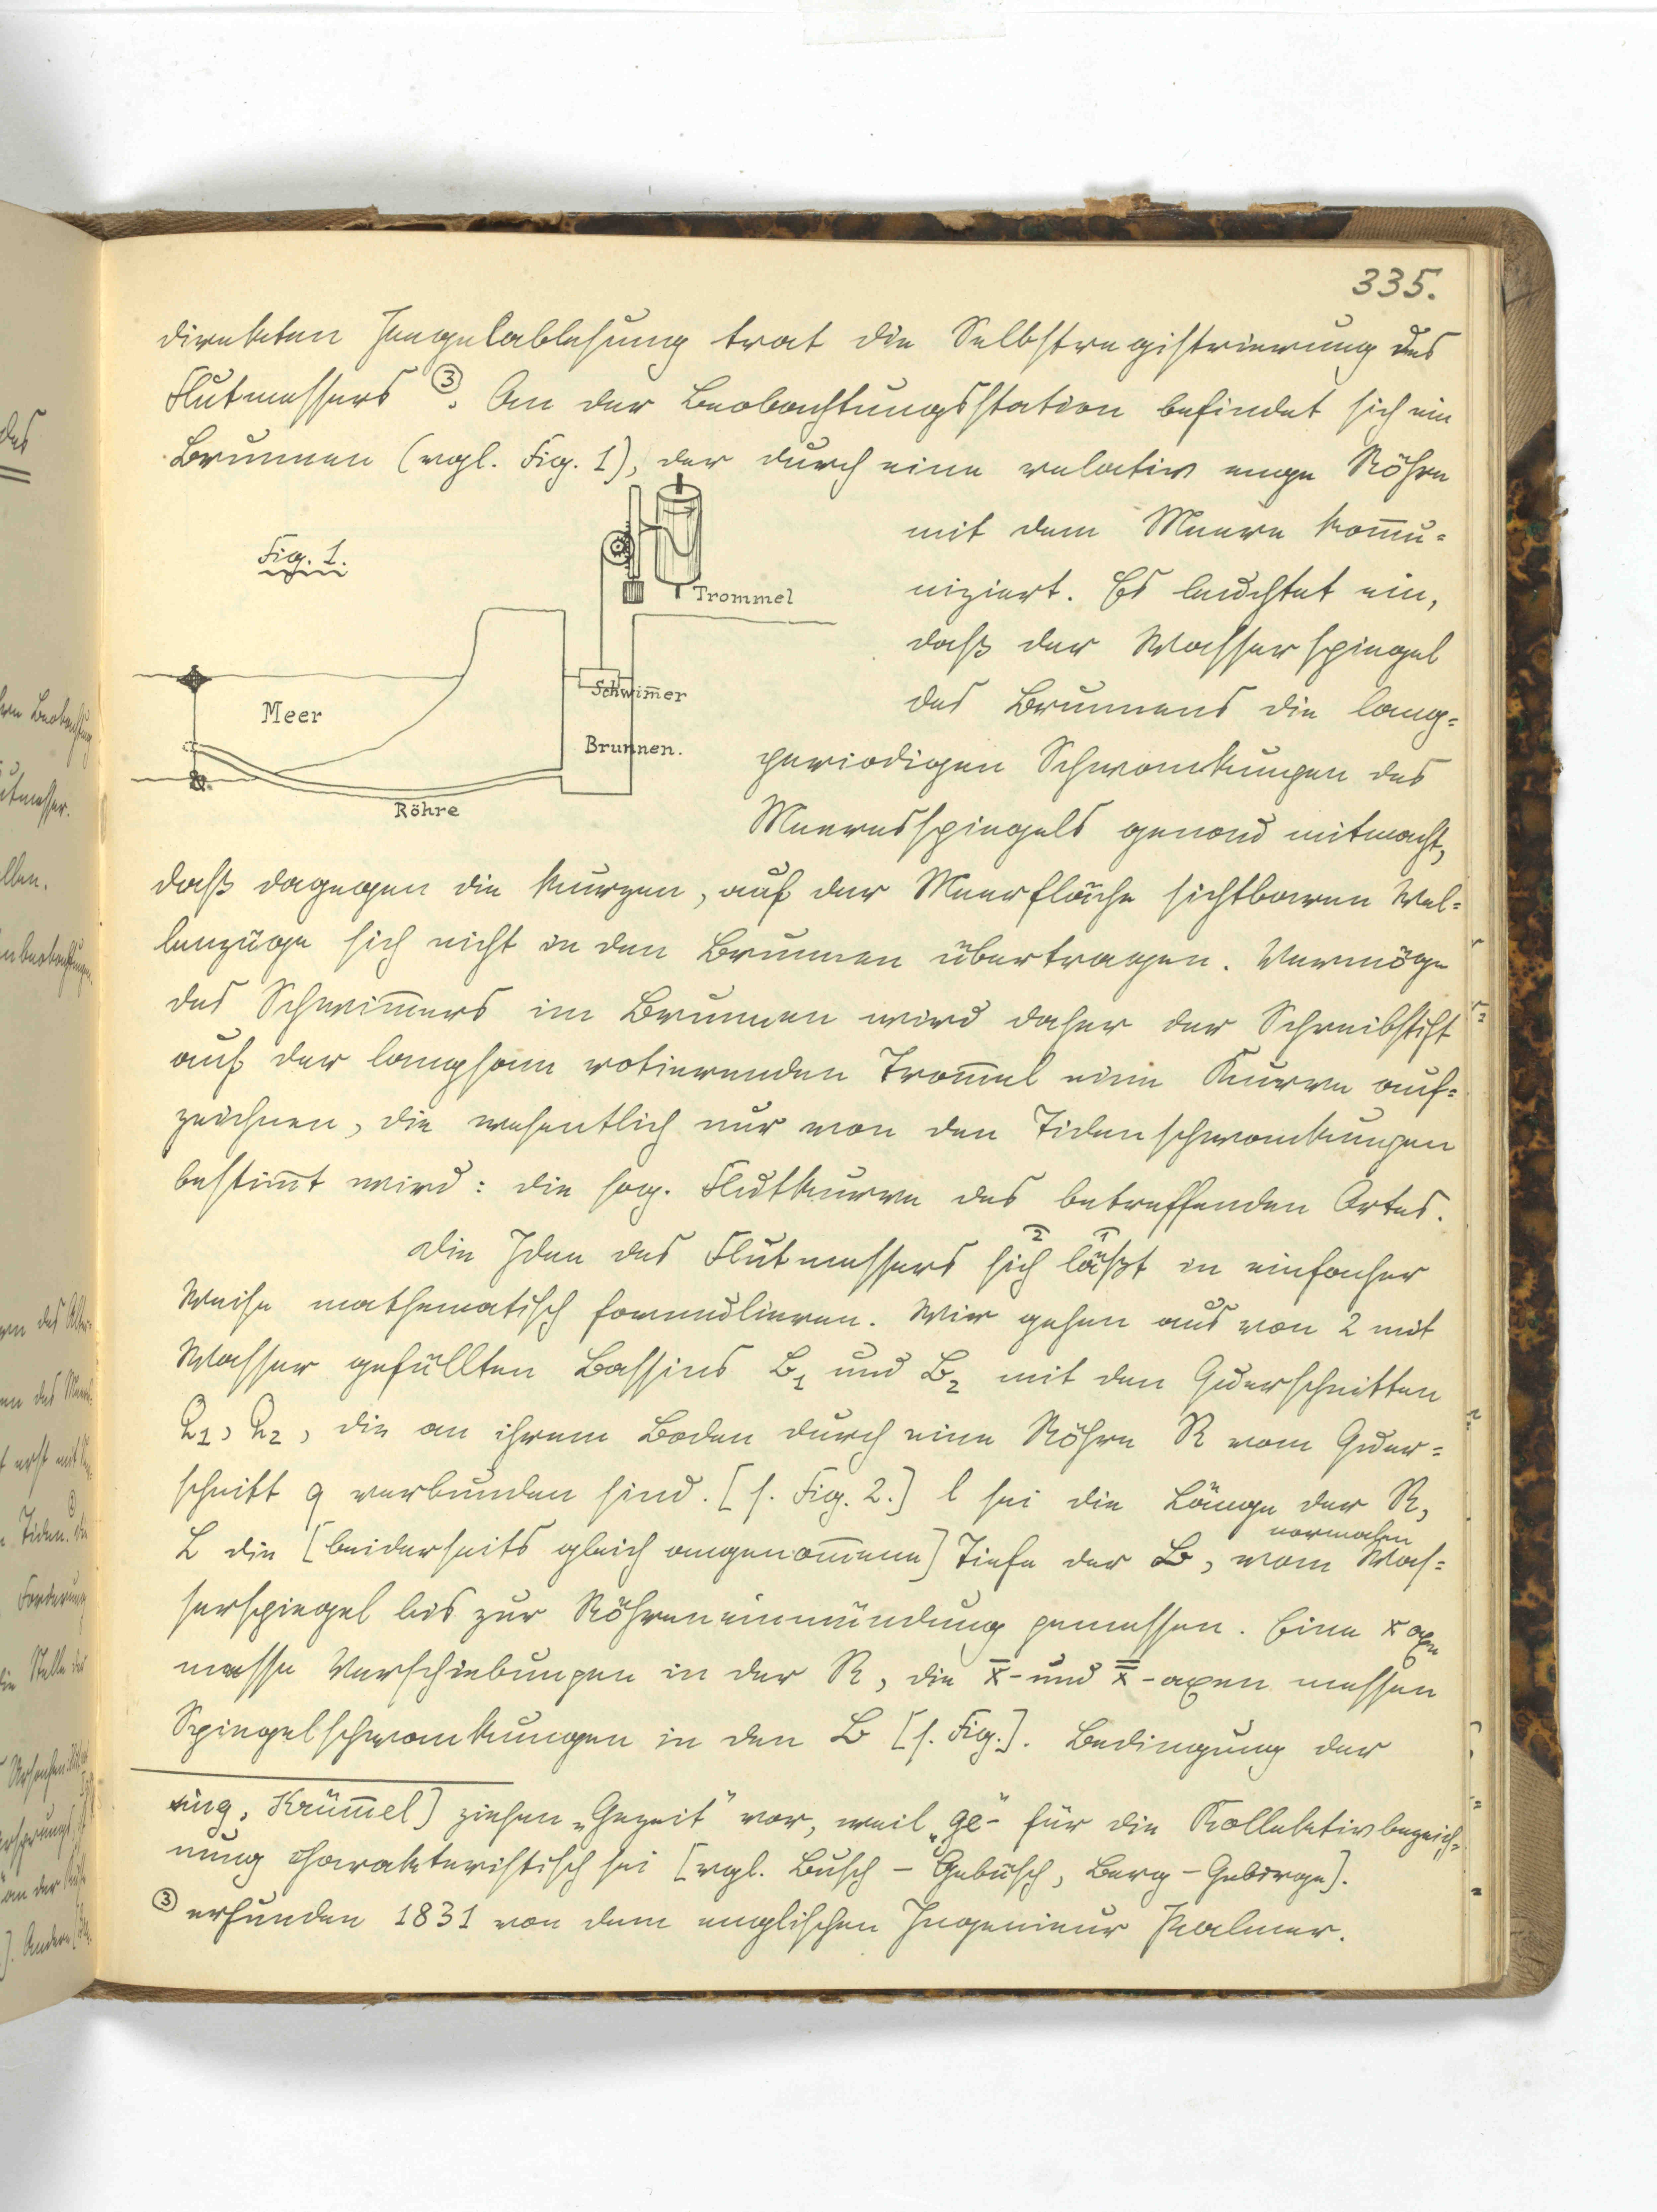 335.
direkten Pegelablesung trat die Selbstregistrierung des
Flutmessers ③. An der Beobachtungsstation befindet sich ein
Brunnen (vgl. Fig. 1), der durch eine relativ enge Röhre
mit dem Meere kom̅u=
niziert. Es leuchtet ein,
daß der Wasserspiegel
des Brunnens die lang=
periodigen Schwankungen des
Meeresspiegels genau mitmacht,
Fig. 1.
Trommel
Schwim̅er
Meer
Brunnen.
Röhre
daß dagegen die kurzen, auf der Meerfläche sichtbaren Wel=
lenzüge sich nicht in den Brunnen übertragen. Vermöge
des Schwim̅ers im Brunnen wird daher der Schreibstift
auf der langsam rotierenden Trom̅el eine Kurve auf=
zeichnen, die wesentlich nur von den Tidenschwankungen
bestim̅t wird: die sog. Flutkurve des betreffenden Ortes.
Die Idee des Flutmessers sich läßt in einfacher
2 1
Weise mathematisch formulieren. Wir gehen aus von 2 mit
Wasser gefüllten Bassins B₁ und B₂ mit den Querschnitten
Q₁, Q₂, die an ihrem Boden durch eine Röhre R vom Quer=
schnitt q verbunden sind. [s. Fig. 2.] l sei die Länge der R,
L die [beiderseits gleich angenom̅ene] Tiefe der B, vom normalen Was=
serspiegel bis zur Röhreneinmündung gemessen. Eine x axe
messe Verschiebungen in der R, die x̅- und x̿-axen messen
Spiegelschwankungen in den B [s. Fig.]. Bedingung der
ing, Krüm̅el] ziehen „Gezeit" vor, weil „ge- für die Kollektivbezeich=
nung charakteristisch sei [vgl. Busch - Gebüsch, Berg - Gebirge].
③ erfunden 1831 von dem englischen Ingenieur Palmer.